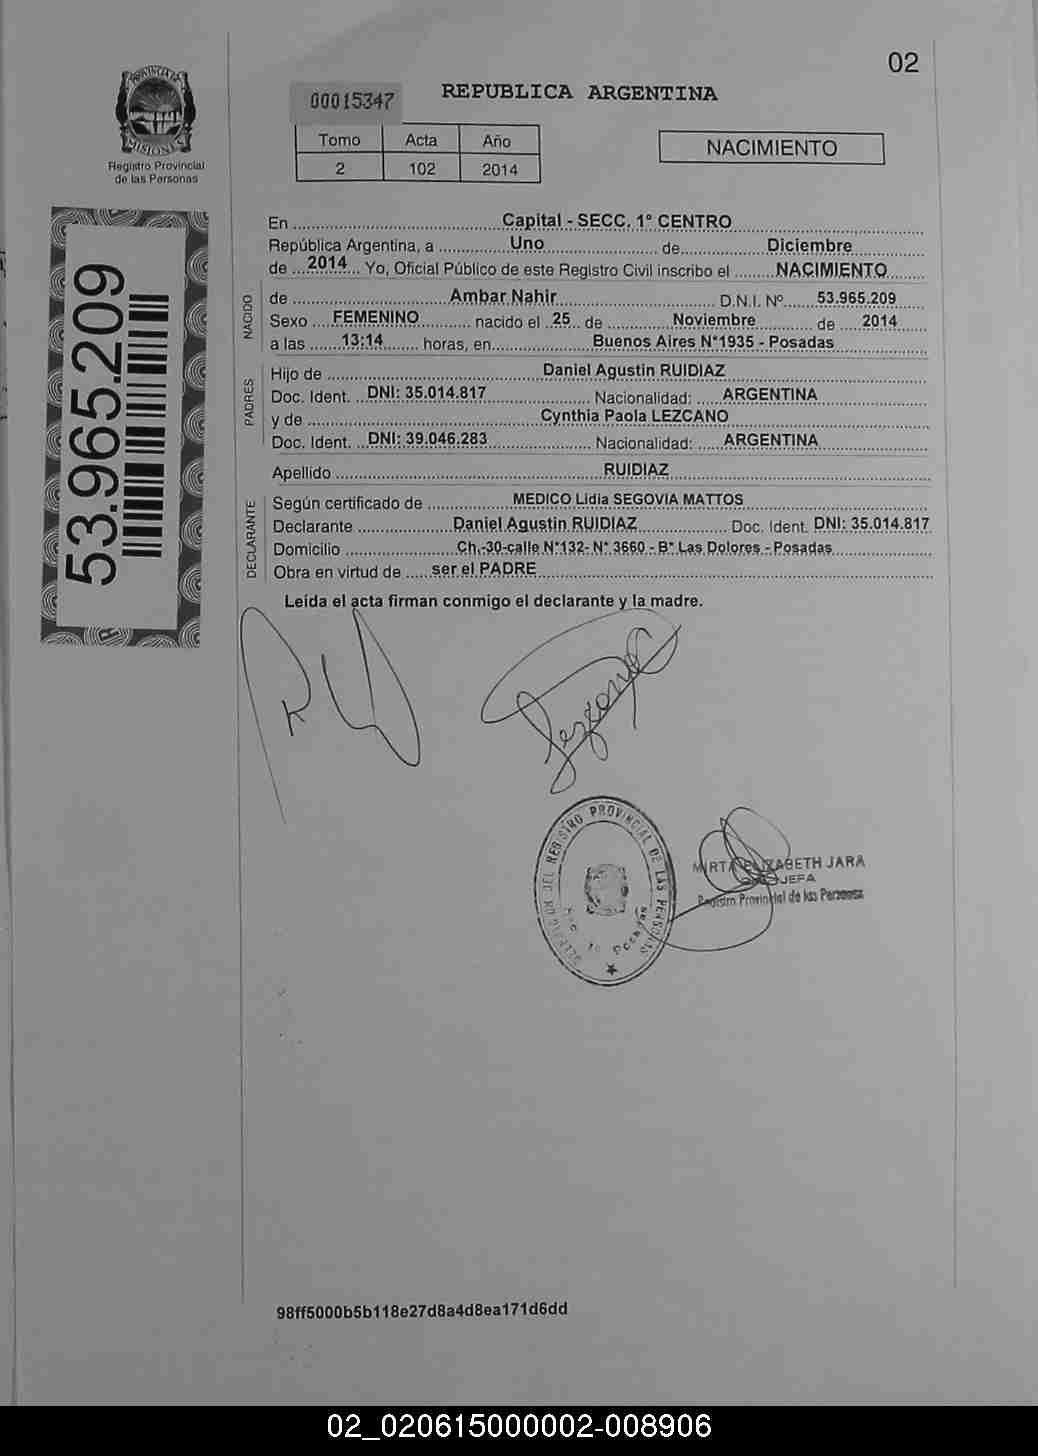 02
PROVINCIA DE
MISIONES
Registro Provincial
de las Personas
00015347
REPUBLICA ARGENTINA
Tomo Acta Año
2 102 2014
NACIMIENTO
53.965.209
En ........ Capital - SECC. 1° CENTRO
República Argentina, a ........ Uno ........ de ........ Diciembre
de ... 2014 ... Yo, Oficial Público de este Registro Civil inscribo el ........ NACIMIENTO ........
NACIDO
de ........ Ambar Nahir ........ D.N.I. Nº ...... 53.965.209
Sexo .... FEMENINO ........ nacido el .25... de ........ Noviembre ........ de .... 2014
a las ....... 13:14 ........ horas, en ........ Buenos Aires N°1935 - Posadas
PADRES
Hijo de ........ Daniel Agustin RUIDIAZ
Doc. Ident. .. DNI: 35.014.817 ........ Nacionalidad: ..... ARGENTINA
y de ........ Cynthia Paola LEZCANO
Doc. Ident. .. DNI: 39.046.283 ........ Nacionalidad: ..... ARGENTINA
Apellido ........ RUIDIAZ
DECLARANTE
Según certificado de ........ MEDICO Lidia SEGOVIA MATTOS
Declarante ........ Daniel Agustin RUIDIAZ ........ Doc. Ident. DNI: 35.014.817
Domicilio ........ Ch.-30-calle N°132- N° 3660 - B° Las Dolores - Posadas
Obra en virtud de ..... ser el PADRE
Leída el acta firman conmigo el declarante y la madre.
Lezcano
DEL REGISTRO PROVINCIAL DE LAS PERSONAS
Posadas
MIRTA ELIZABETH JARA
JEFA
Registro Provincial de las Personas
98ff5000b5b118e27d8a4d8ea171d6dd
02_020615000002-008906